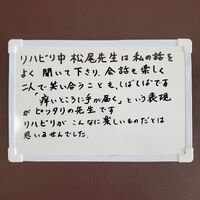 リハビリ中 松尾先生は 私の話を
よく 聞いて下さり、会話も楽しく
二人で笑い合うことも、しばしばです
「痒いところに手が届く」という表現
が ピッタリの先生です
リハビリが こんなに楽しいものだとは
思いませんでした。